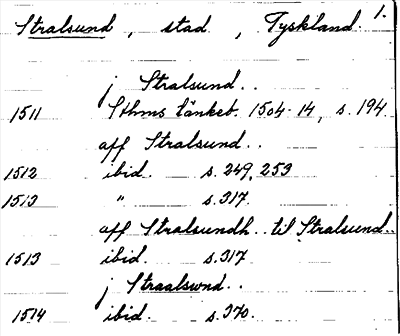 Stralsund, stad, Tyskland. 1.
j Stralsund..
1511 Sthms tänkeb. 1504-14, s. 194
aff Stralsund..
1512 ibid. s. 249, 253
1513 " s. 317.
aff Stralsundh.. til Stralsund..
1513 ibid. s. 317
j Straalswnd..
1514 ibid. s. 370.